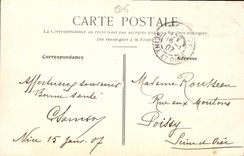 06
CARTE POSTALE
La Correspondance au recto n'est pas acceptée par tous les pays étrangers
(Se renseigner à la Poste)
Correspondance
Adresse
Affectueux souvenir
Bonne santé
Nice 15 Janv. 07
Madame Rousseau
Rue aux Moutons
Poissy
Seine et Oise